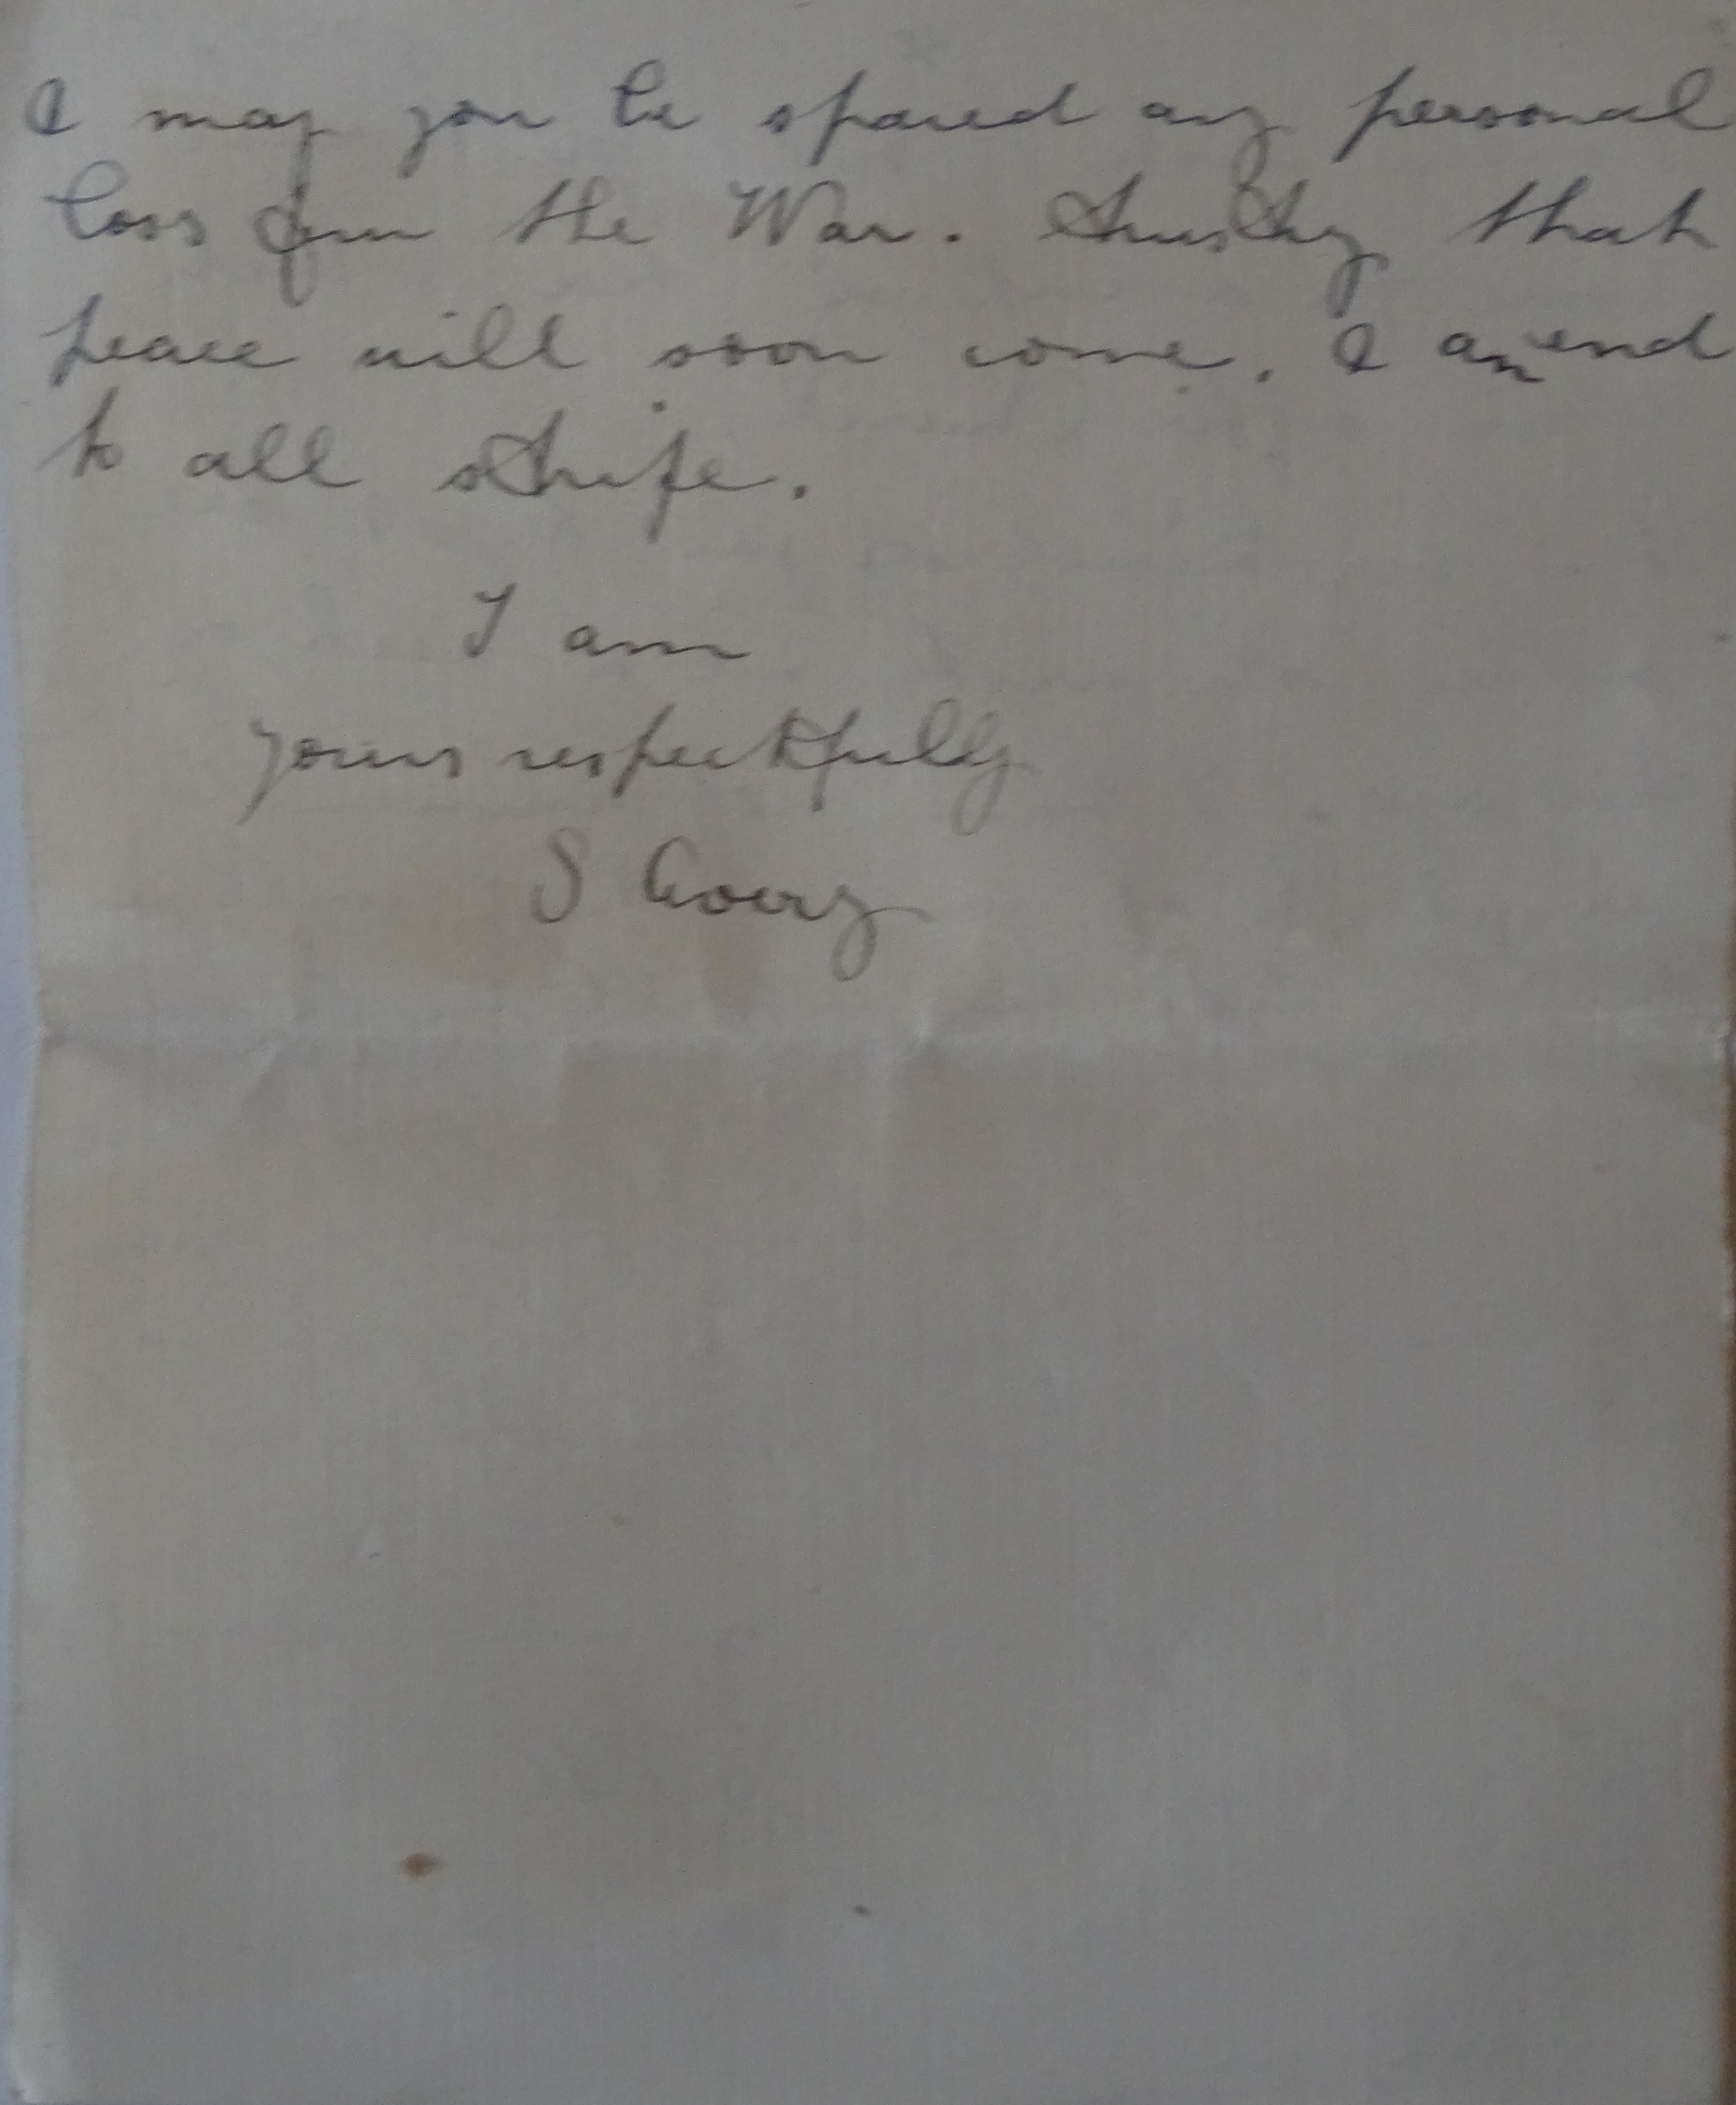 & may you be spared any personal
loss from the War. Trusting that
peace will soon come. & an end
to all strife.
I am
yours respectfully
S